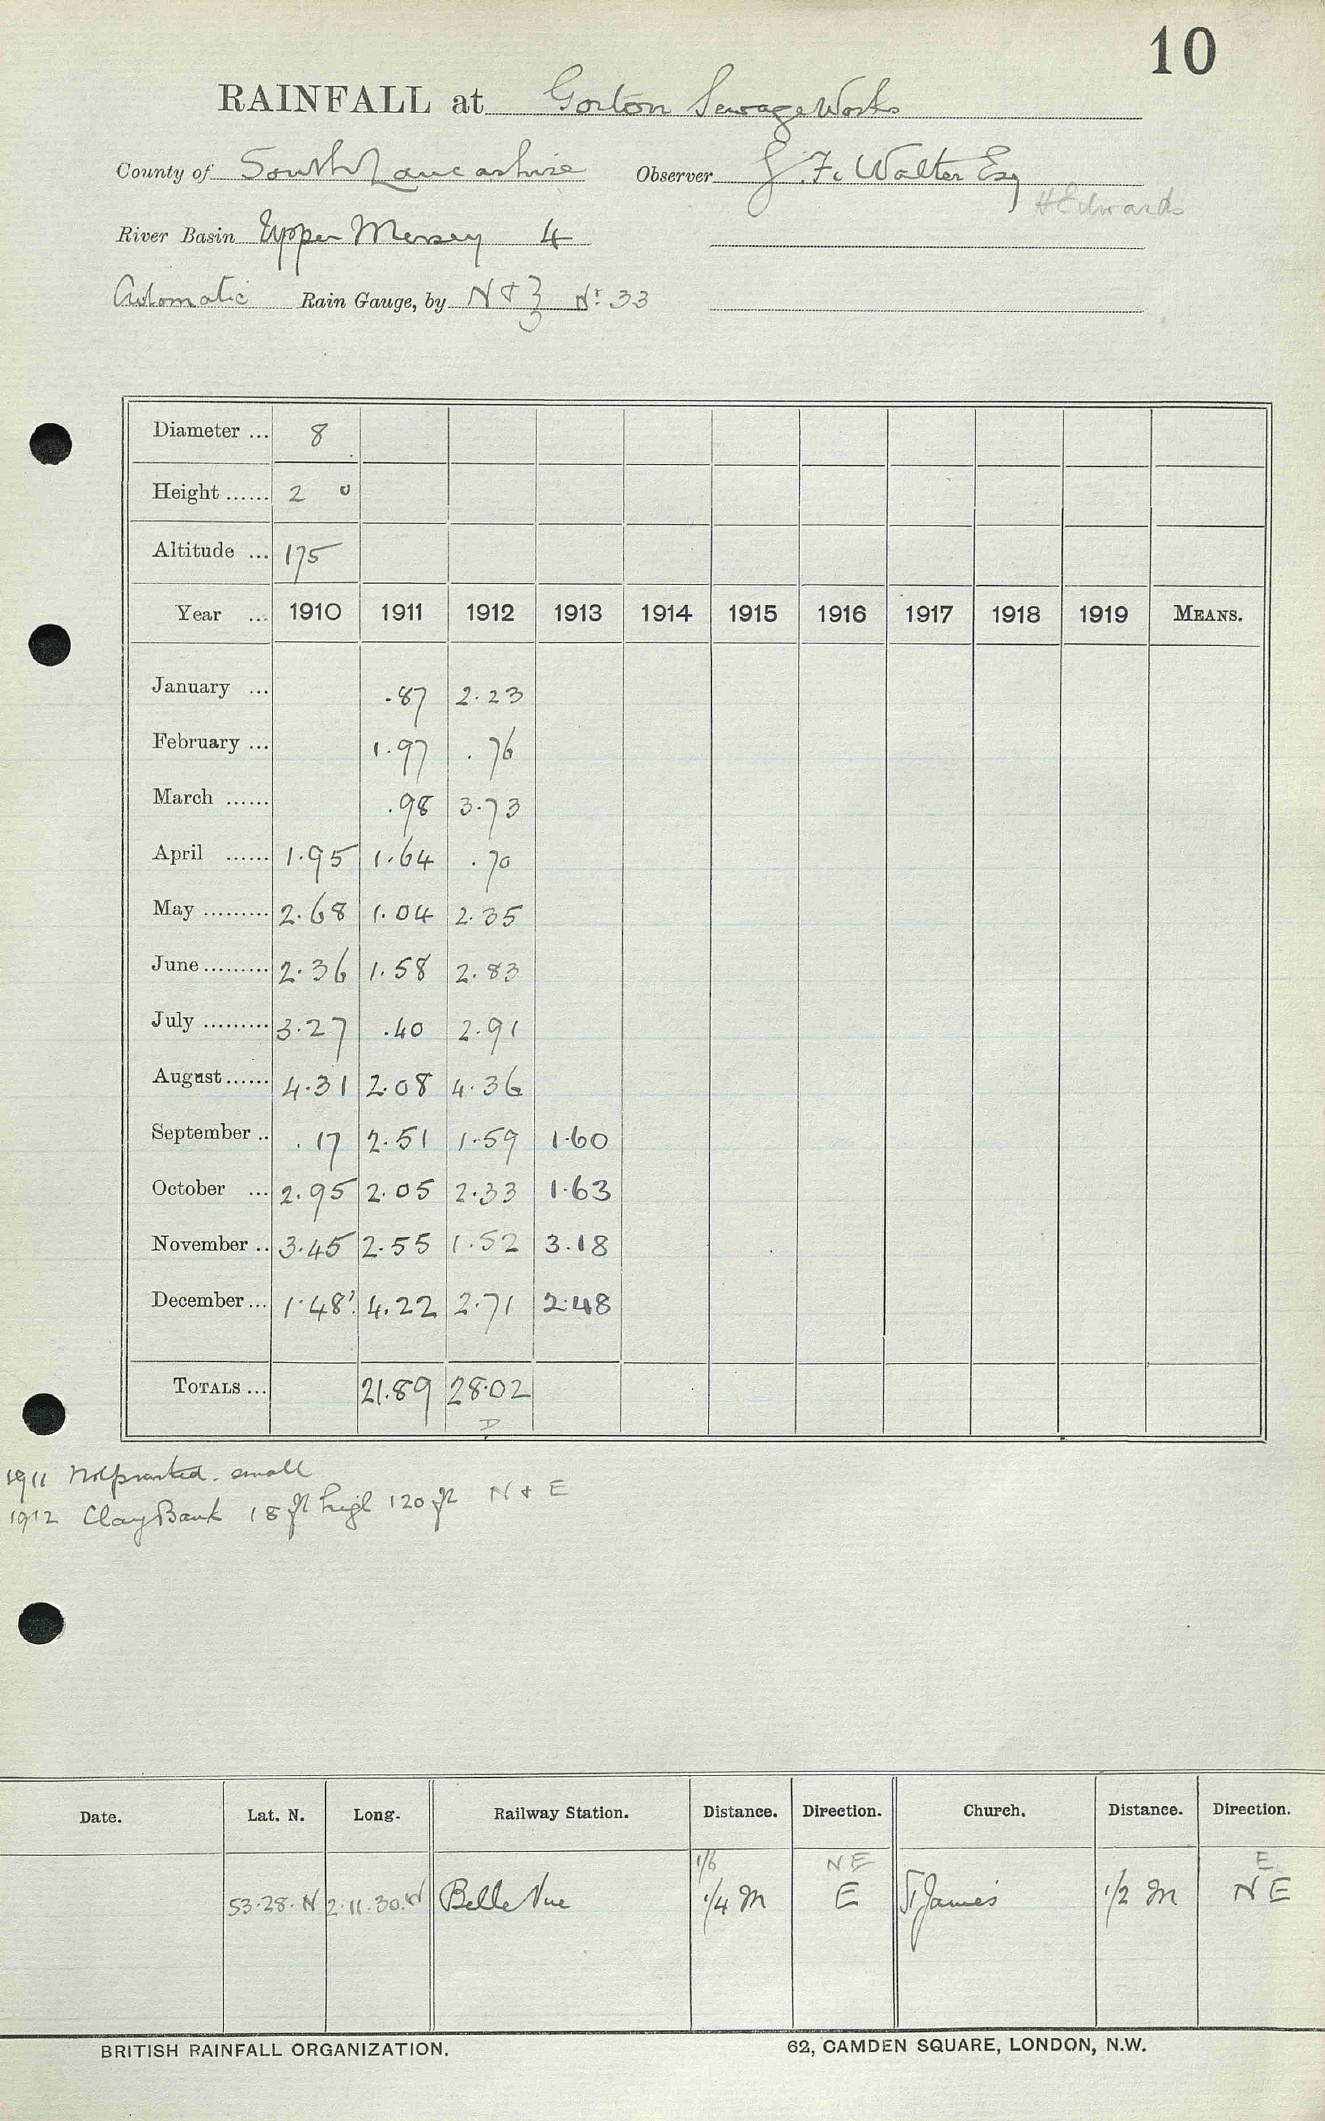 10
RAINFALL at Gorton Sewage Works
County of South Lancashire Observer J. F. Walter Esq
H Edwards
River Basin Upper Mersey 4
Automatic Rain Gauge, by N & Z Nr. 33
Diameter ... 8
Height ...... 2 0
Altitude ... 175
Year ... 1910 1911 1912 1913 1914 1915 1916 1917 1918 1919 MEANS.
January ... .87 2.23
February ... 1.97 .76
March ...... .98 3.73
April ...... 1.95 1.64 .70
May ......... 2.68 1.04 2.35
June ......... 2.36 1.58 2.83
July ......... 3.27 .40 2.91
August ...... 4.31 2.08 4.36
September .. .17 2.51 1.59 1.60
October ... 2.95 2.05 2.33 1.63
November .. 3.45 2.55 1.52 3.18
December ... 1.48 4.22 2.71 2.48
TOTALS ... 21.89 28.02
D
1911 Not printed. small
1912 Clay Bank 18 ft high 120 ft N & E
Date. Lat. N. Long. Railway Station. Distance. Direction. Church. Distance. Direction.
1/6 NE E
53.28. N 2.11.30.W Belle Vue 1/4 M E St James 1/2 M NE
BRITISH RAINFALL ORGANIZATION. 62, CAMDEN SQUARE, LONDON, N.W.